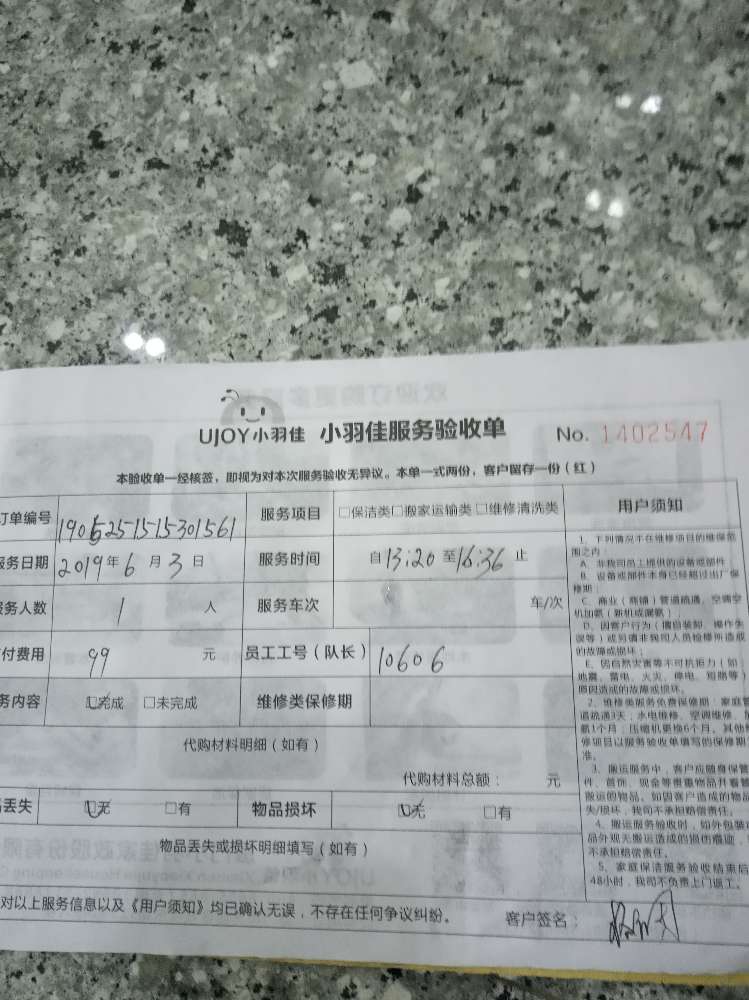 UJOY小羽佳 小羽佳服务验收单 No. 1402547
本验收单一经核签，即视为对本次服务验收无异议。本单一式两份，客户留存一份（红）
订单编号 1905251515301561 服务项目 □保洁类□搬家运输类□维修清洗类
服务日期 2019年6月3日 服务时间 自13:20至16:36止
务人数 1 人 服务车次 车/次
付费用 99 元 员工工号（队长） 10606
务内容 □完成 □未完成 维修类保修期
代购材料明细（如有）
代购材料总额： 元
丢失 □无 □有 物品损坏 □无 □有
物品丢失或损坏明细填写（如有）
对以上服务信息以及《用户须知》均已确认无误，不存在任何争议纠纷。 客户签名：
用户须知
1、下列情况不在维修项目的维保范
围之内：
A、非我司员工提供的设备或部件
B、设备或部件本身已经超过出厂保
修期；
C、商业（商铺）管道疏通、空调空
机加氟（新机或漏氟）；
D、因客户行为（擅自装卸、操作失
误等）或另请非我司人员检修所造成
的故障或损坏；
E、因自然灾害等不可抗拒力（如
地震、雷电、火灾、停电、短路等）
原因造成的故障或损坏。
2、维修类服务免费保修期：家庭管
道疏通3天；水电维修、空调维修、加
氟1个月；压缩机更换6个月。其他维
修项目以服务验收单填写的保修期
准。
3、搬运服务中，客户应随身保管
件、首饰、现金等贵重物品并看管
搬运的物品。如因客户造成的物品
失/损坏，我司不承担赔偿责任。
4、搬运服务验收时，如外包装
品外观无搬运造成的损伤痕迹，
不承担赔偿责任。
5、家庭保洁服务验收结束后
48小时，我司不负责上门返工。